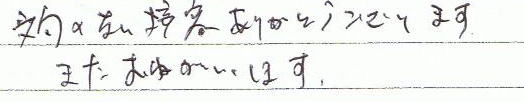 文句のない接客ありがとうございます
またおねがいします.